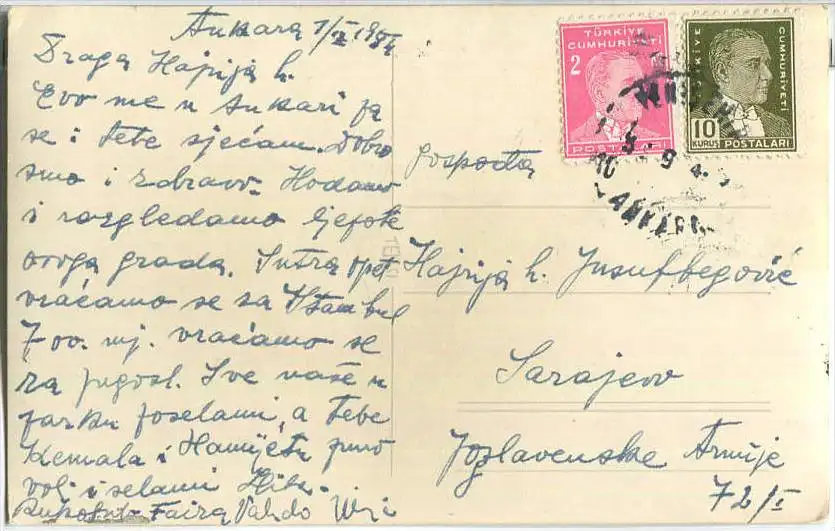 Ankara 1/IX 1954
Draga Hajrija h.
Evo me u Ankari pa
se i tebe sjećam. Dobro
smo i zdravo. Hodamo
i razgledamo ljepote
ovoga grada. Sutra opet
vraćamo se za Istambul
7 ov. mj. vraćamo se
za Jugosl. Sve vaše u
poselami, a tebe
Kemala i Hamijetu puno
voli i selami
Faiza Vahdo
TÜRKİYE
CUMHURİYETİ
2
POSTALARI
TÜRKİYE
CUMHURİYETİ
10
KURUŞ POSTALARI
YENİŞEHİR
ANKARA
Gospođa
Hajrija h. Jusufbegović
Sarajevo
Jugslavenske Armije
72/I